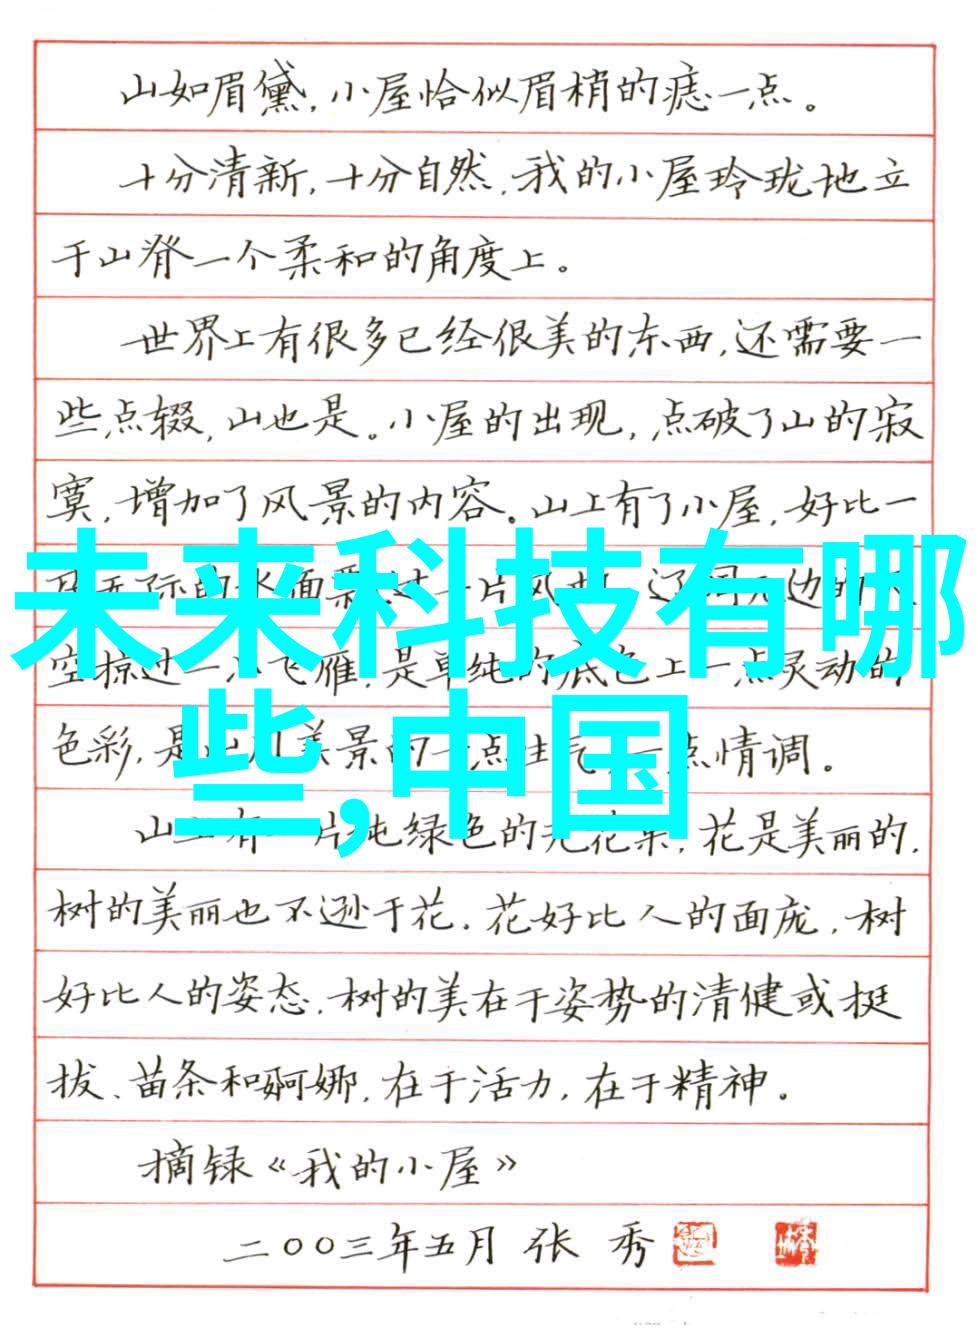 山如眉黛，小屋恰似眉梢的痣一点。
十分清新，十分自然，我的小屋玲珑地立
于山脊一个柔和的角度上。
世界上有很多已经很美的东西，还需要一
些点缀，山也是。小屋的出现，点破了山的寂
寞，增加了风景的内容。山上有了小屋，好比一
未来科技有哪
际的水面飘过一片风
边的
空掠过一
飞雁，是单纯的底色上一点灵动的
些,中国
色彩，是
美景的一点生气
点情调。
山上有
片纯绿色的无花果，花是美丽的，
树的美丽也不逊于花。花好比人的面庞，树
好比人的姿态。树的美在于姿势的清健或挺
拔、苗条和婀娜，在于活力，在于精神。
摘录《我的小屋》
二〇〇三年五月 张 秀